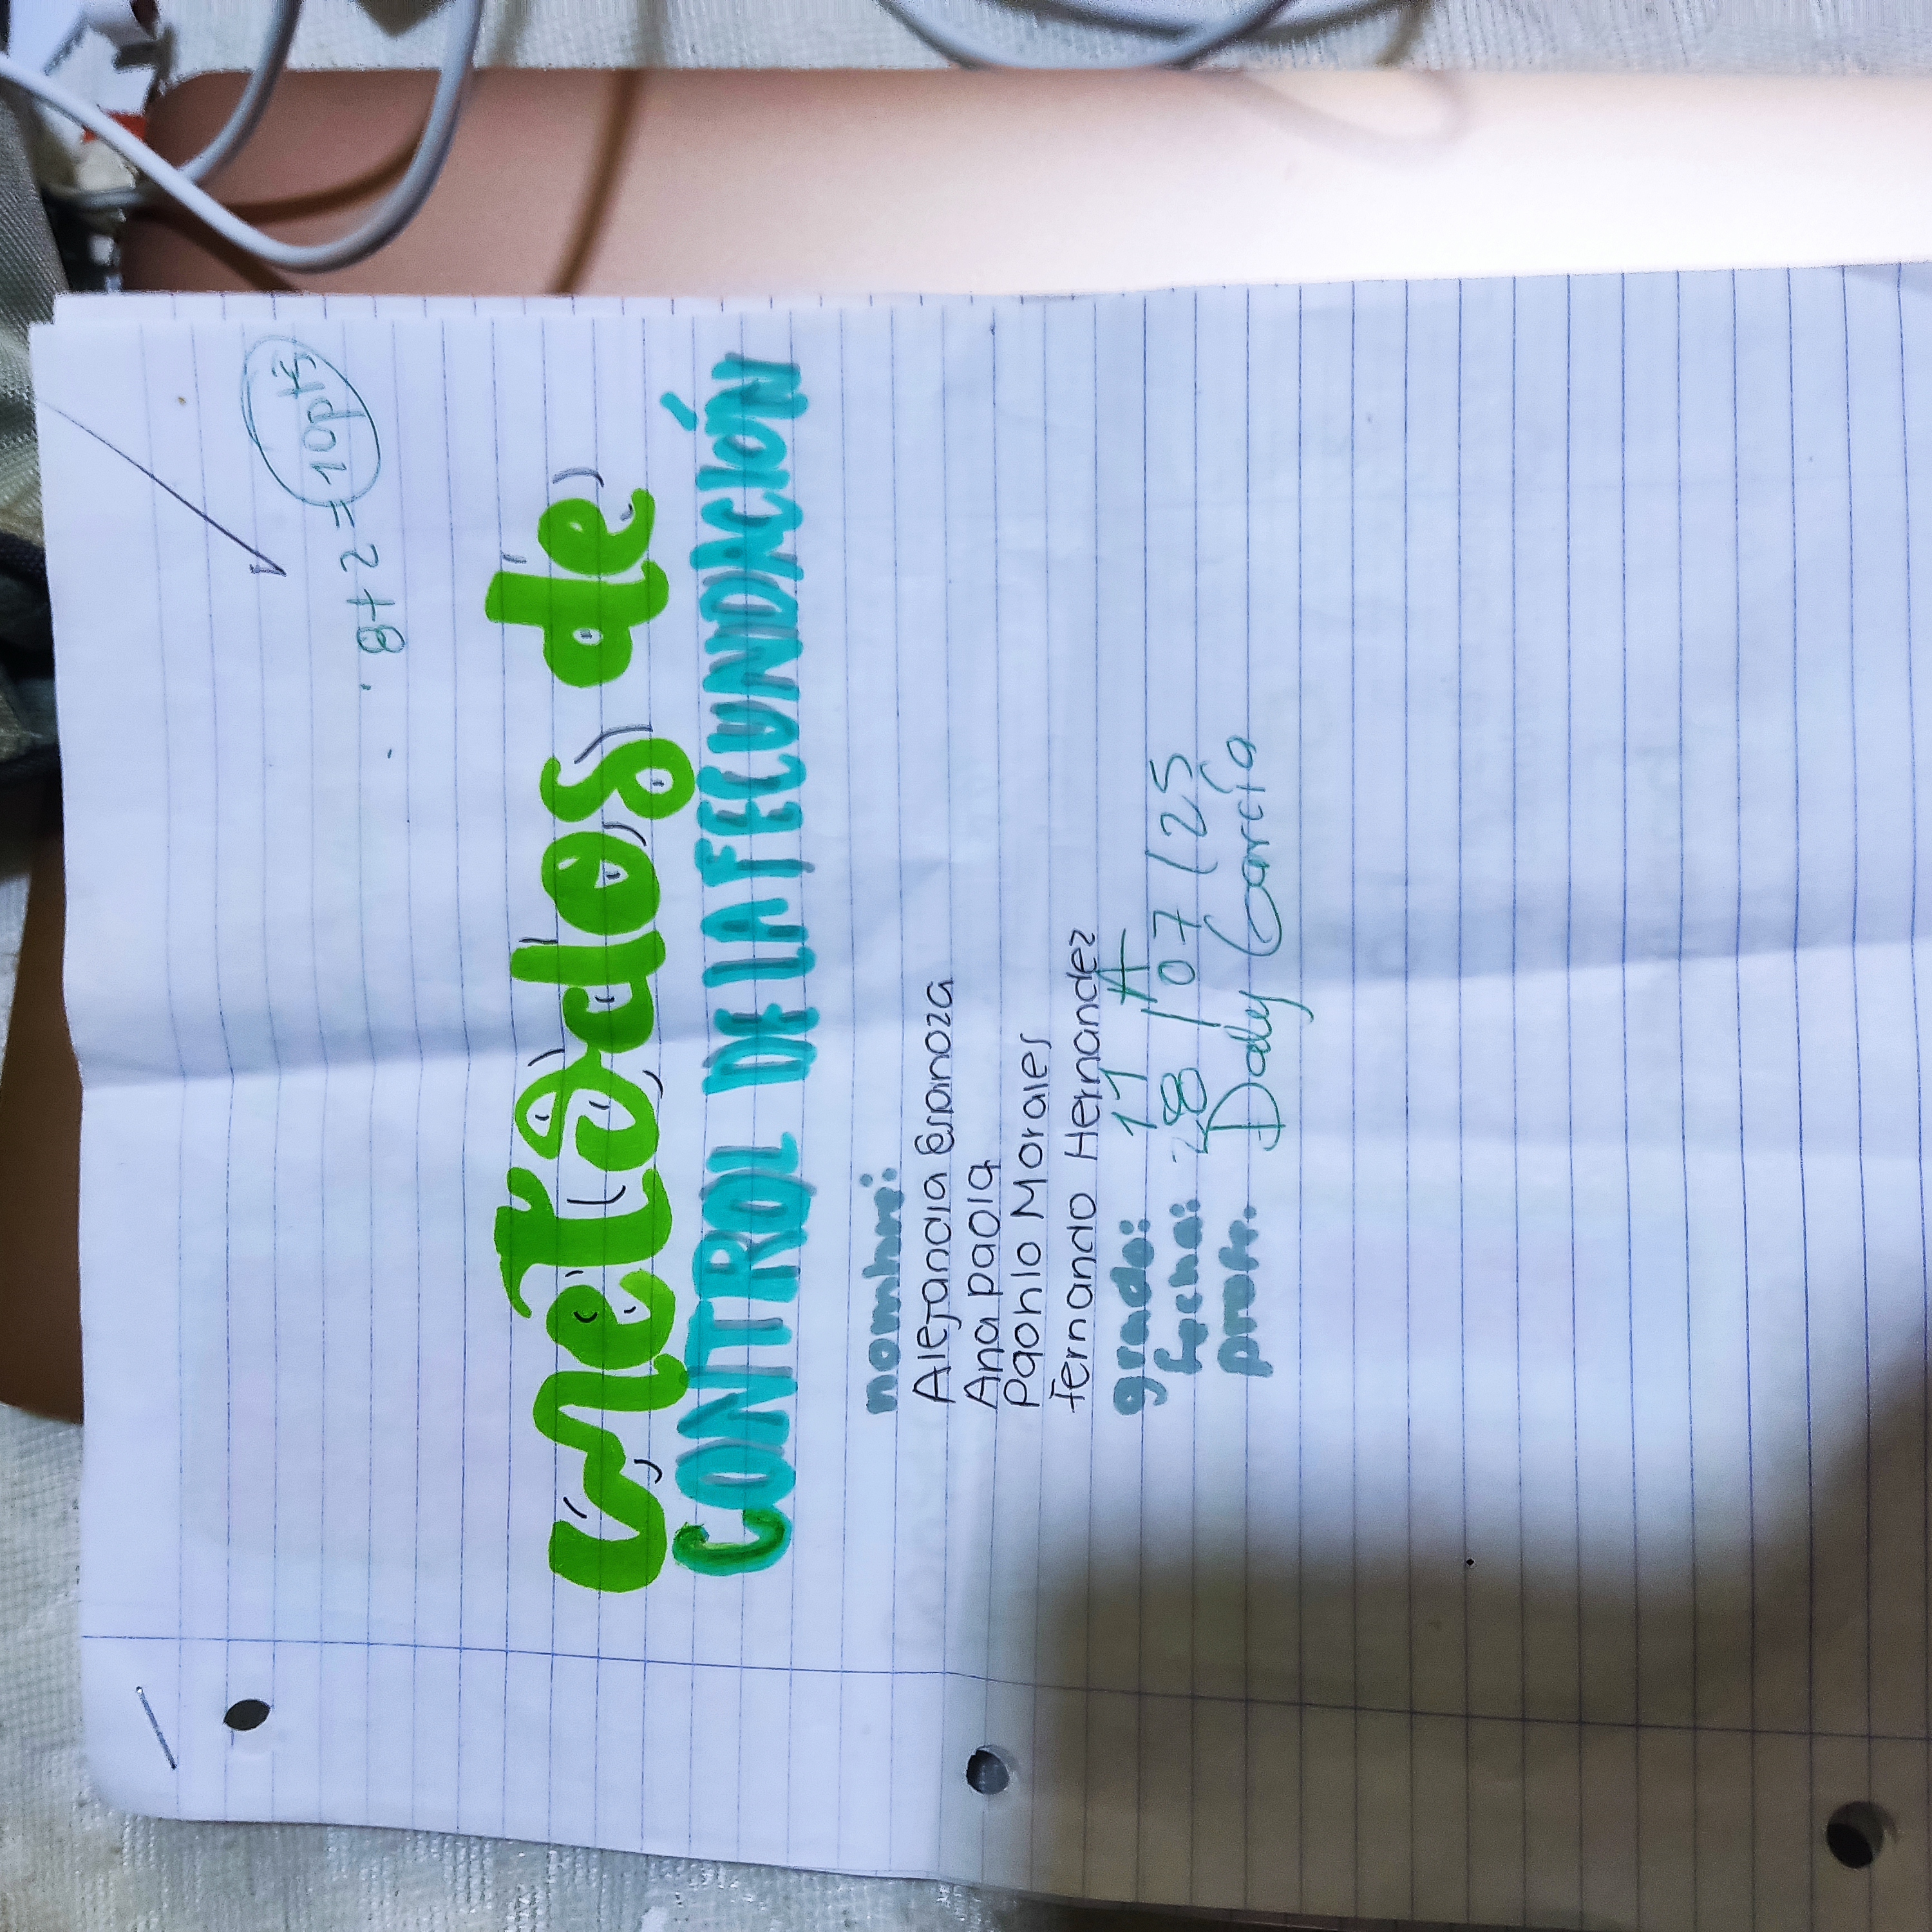 8+2 = 10pts
metodos de
CONTROL DE LA FECUNDACIÓN
nombre:
Alejandra Espinoza
Ana paola
Paohlo Morales
fernando Hernandez
grado: 11 A
fecha: 28/07/25
prof: Dady García